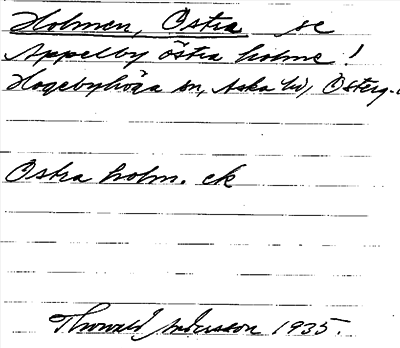 Holmen, Östra se
Appelby östra holme!
Hagebyhöga sn, Aska hd, Österg.
Östra holm. ek
Thorvald Andersson 1935.